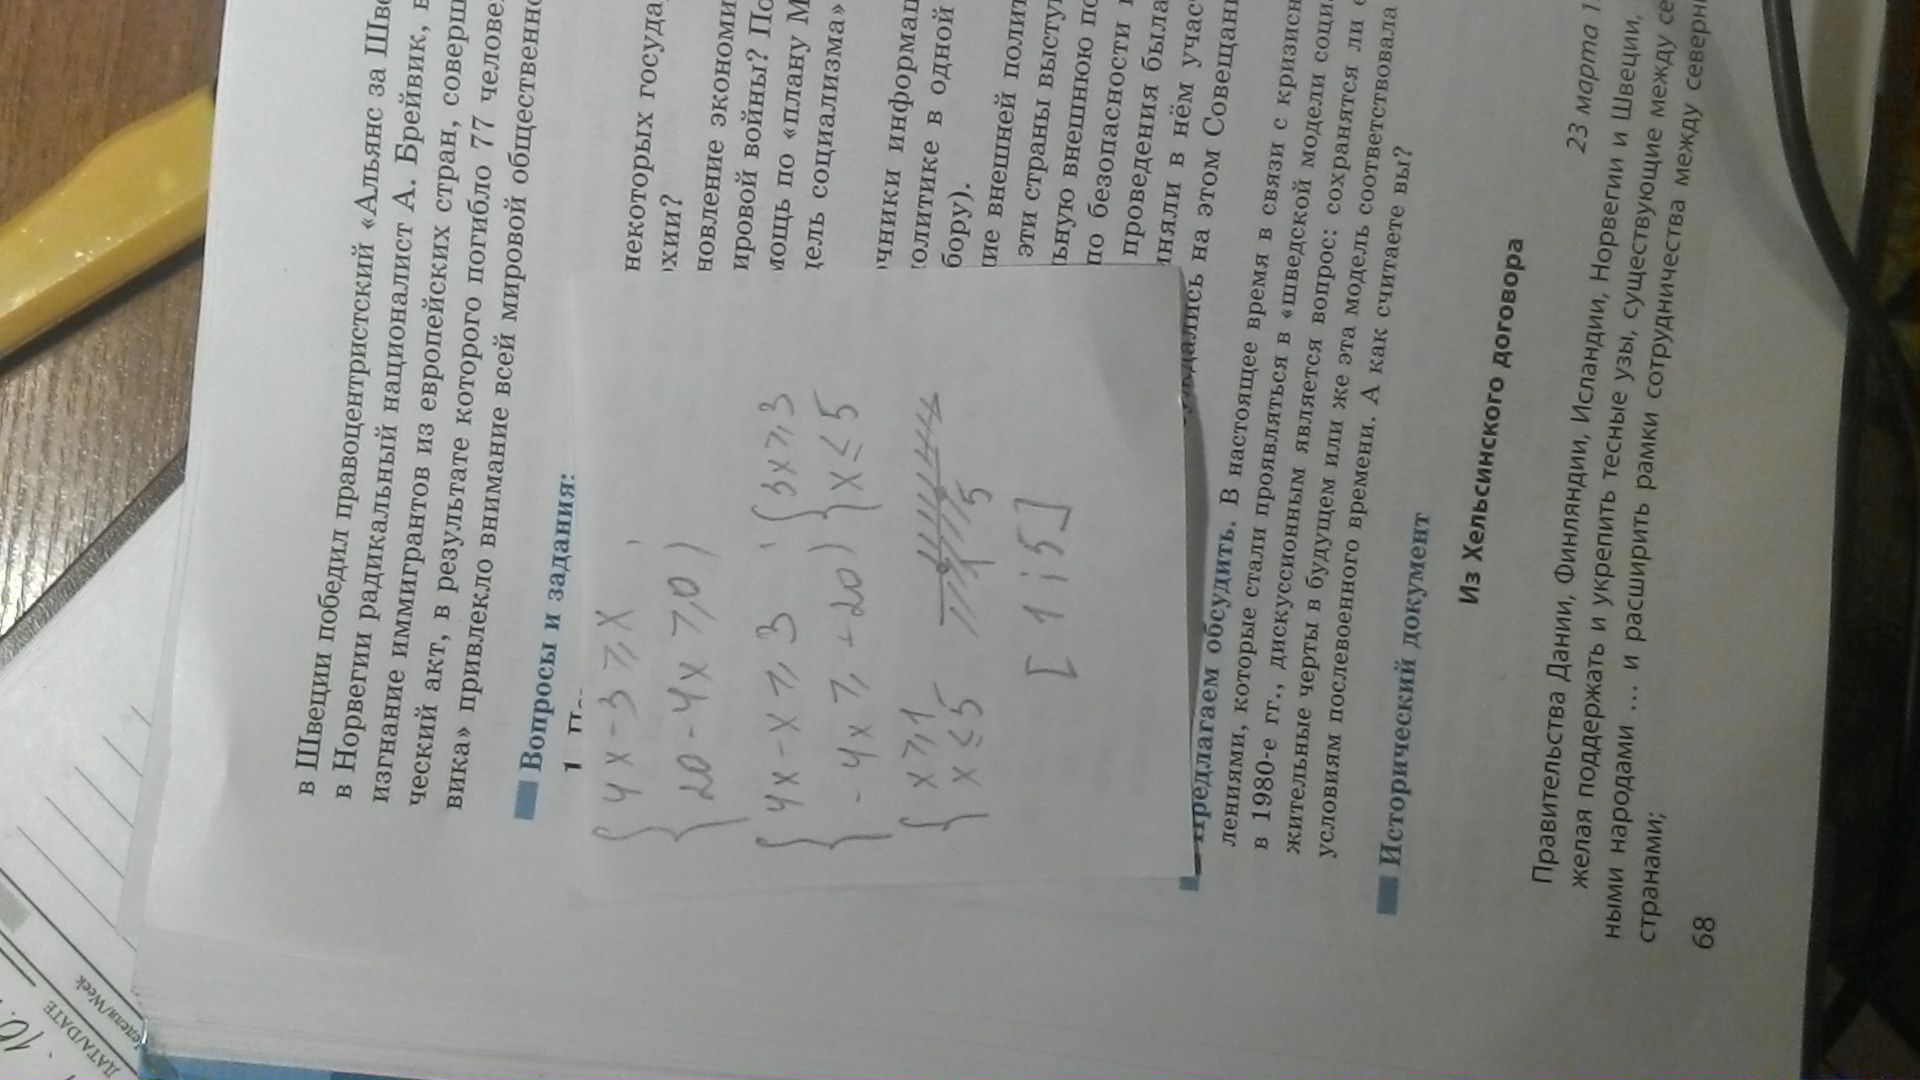 в Швеции победил правоцентристский «Альянс за Шве
в Норвегии радикальный националист А. Брейвик, в
изгнание иммигрантов из европейских стран, соверш
ческий акт, в результате которого погибло 77 челове
вика» привлекло внимание всей мировой общественно
Вопросы и задания:
1. П
некоторых госуда
рхии?
новление экономи
ировой войны? По
мощь по «плану М
дель социализма»
чники информац
олитике в одной
бору).
ие внешней полит
эти страны высту
ьную внешнюю по
по безопасности и
проведения была
иняли в нём учас
ждались на этом Совещани
{4x-3⩾x,
{20-4x⩾0)
{4x-x⩾3, {3x⩾3
{-4x⩾-20) {x≤5
{x⩾1
{x≤5
1 5
[1;5]
Предлагаем обсудить. В настоящее время в связи с кризисн
лениями, которые стали проявляться в «шведской модели социа
в 1980-е гг., дискуссионным является вопрос: сохранятся ли е
жительные черты в будущем или же эта модель соответствовала
условиям послевоенного времени. А как считаете вы?
Исторический документ
Из Хельсинского договора
23 марта 1
Правительства Дании, Финляндии, Исландии, Норвегии и Швеции,
желая поддержать и укрепить тесные узы, существующие между се
ными народами ... и расширить рамки сотрудничества между северн
странами;
68
ДАТА/DATE
Неделя/Week
10.